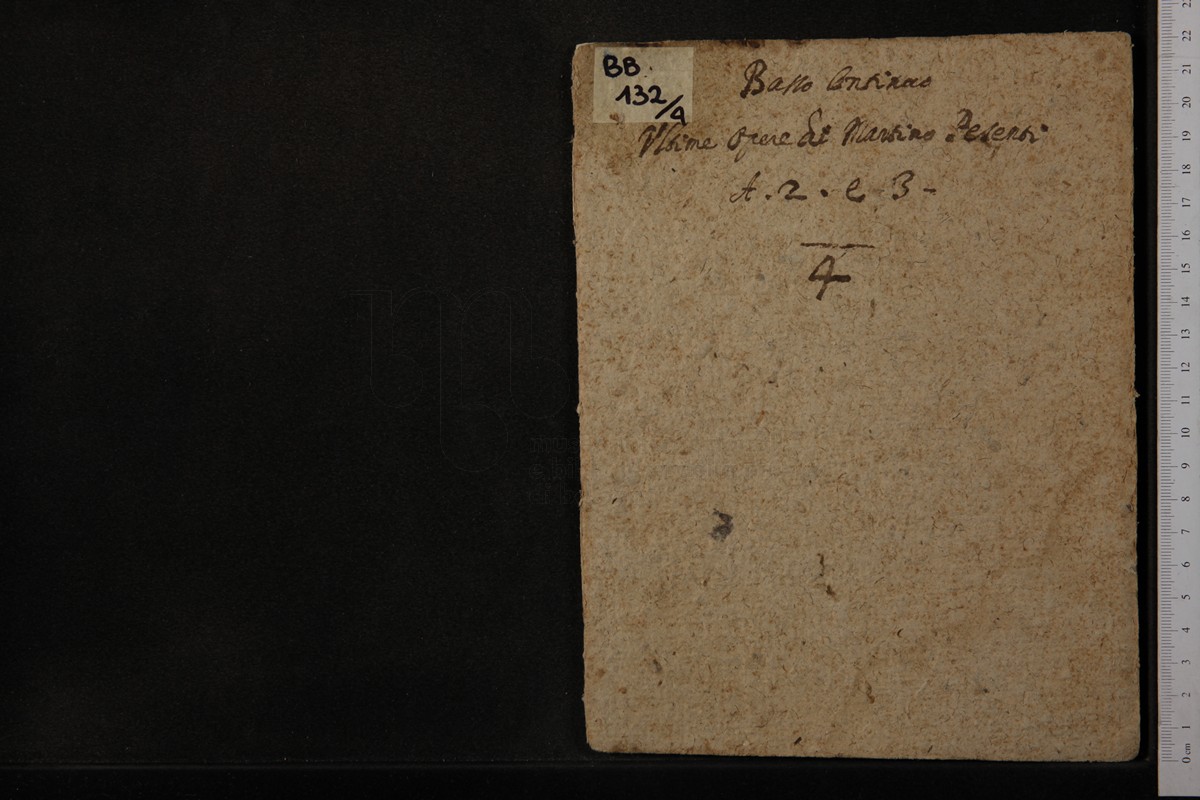 BB.
132/4
Basso Continuo
Ultime opere di Martino Pesenti
A. 2. e 3-
4
0 cm 1 2 3 4 5 6 7 8 9 10 11 12 13 14 15 16 17 18 19 20 21 22